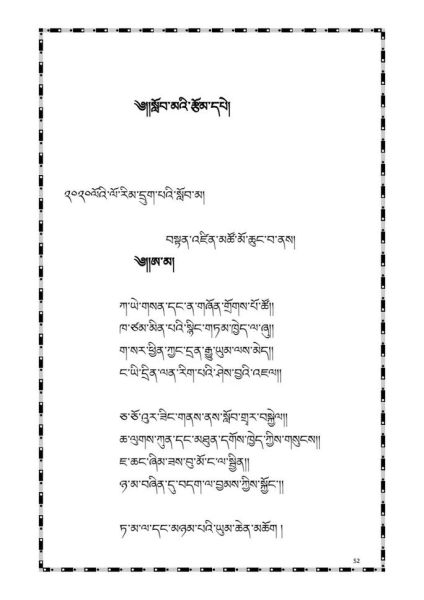 ༄༅།།སློབ་མའི་རྩོམ་དཔེ།
༢༠༢༠ལོའི་ལོ་རིམ་དྲུག་པའི་སློབ་མ།
བསྟན་འཛིན་མཚོ་མོ་ཆུང་བ་ནས།
༄༅།།ཨ་མ།
ཀ་ཡེ་གསན་དང་ན་གཞོན་གྲོགས་པོ་ཚོ།།
ཁ་ཙམ་མིན་པའི་སྙིང་གཏམ་ཁྱེད་ལ་ཞུ།།
ག་སར་ཕྱིན་ཀྱང་དྲན་རྒྱུ་ཡུམ་ལས་མེད།།
ང་ཡི་དྲིན་ལན་རིག་པའི་ཤེས་བྱའི་འཇལ།།
ཅ་ཅོ་འུར་ཟིང་གནས་ནས་སློབ་གྲར་བསྐྱེལ།།
ཆ་ལུགས་ཀུན་དང་མཐུན་དགོས་ཁྱེད་ཀྱིས་གསུངས།།
ཇ་ཆང་ཞིམ་ཟས་བུ་མོ་ང་ལ་སྦྱིན།།
ཉ་མ་བཞིན་དུ་བདག་ལ་བྱམས་ཀྱིས་སྐྱོང་།།
ཏ་མ་ལ་དང་མཉམ་པའི་ཡུམ་ཆེན་མཆོག །
52